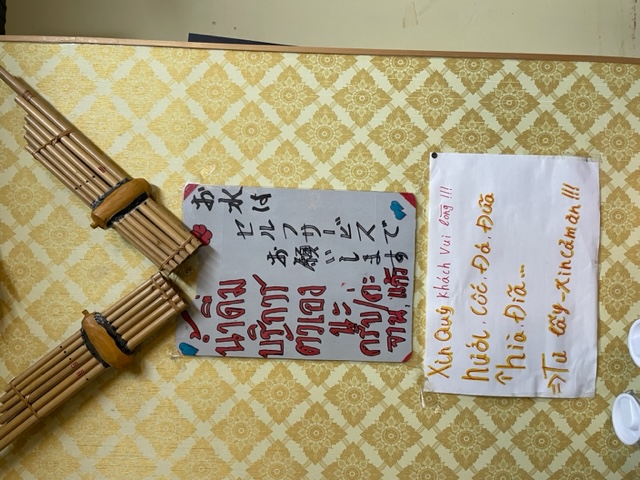 お水は
セルフサービスで
お願いします
น้ำดื่ม
บริการ
ตัวเอง
นะ
ครับ/ค่ะ
จาน, แก้ว
Xin Quý khách vui lòng!!!
nước. Cốc. Đá. Đũa
Thìa. Đĩa...
⇒ Tự lấy - xin cảm ơn!!!